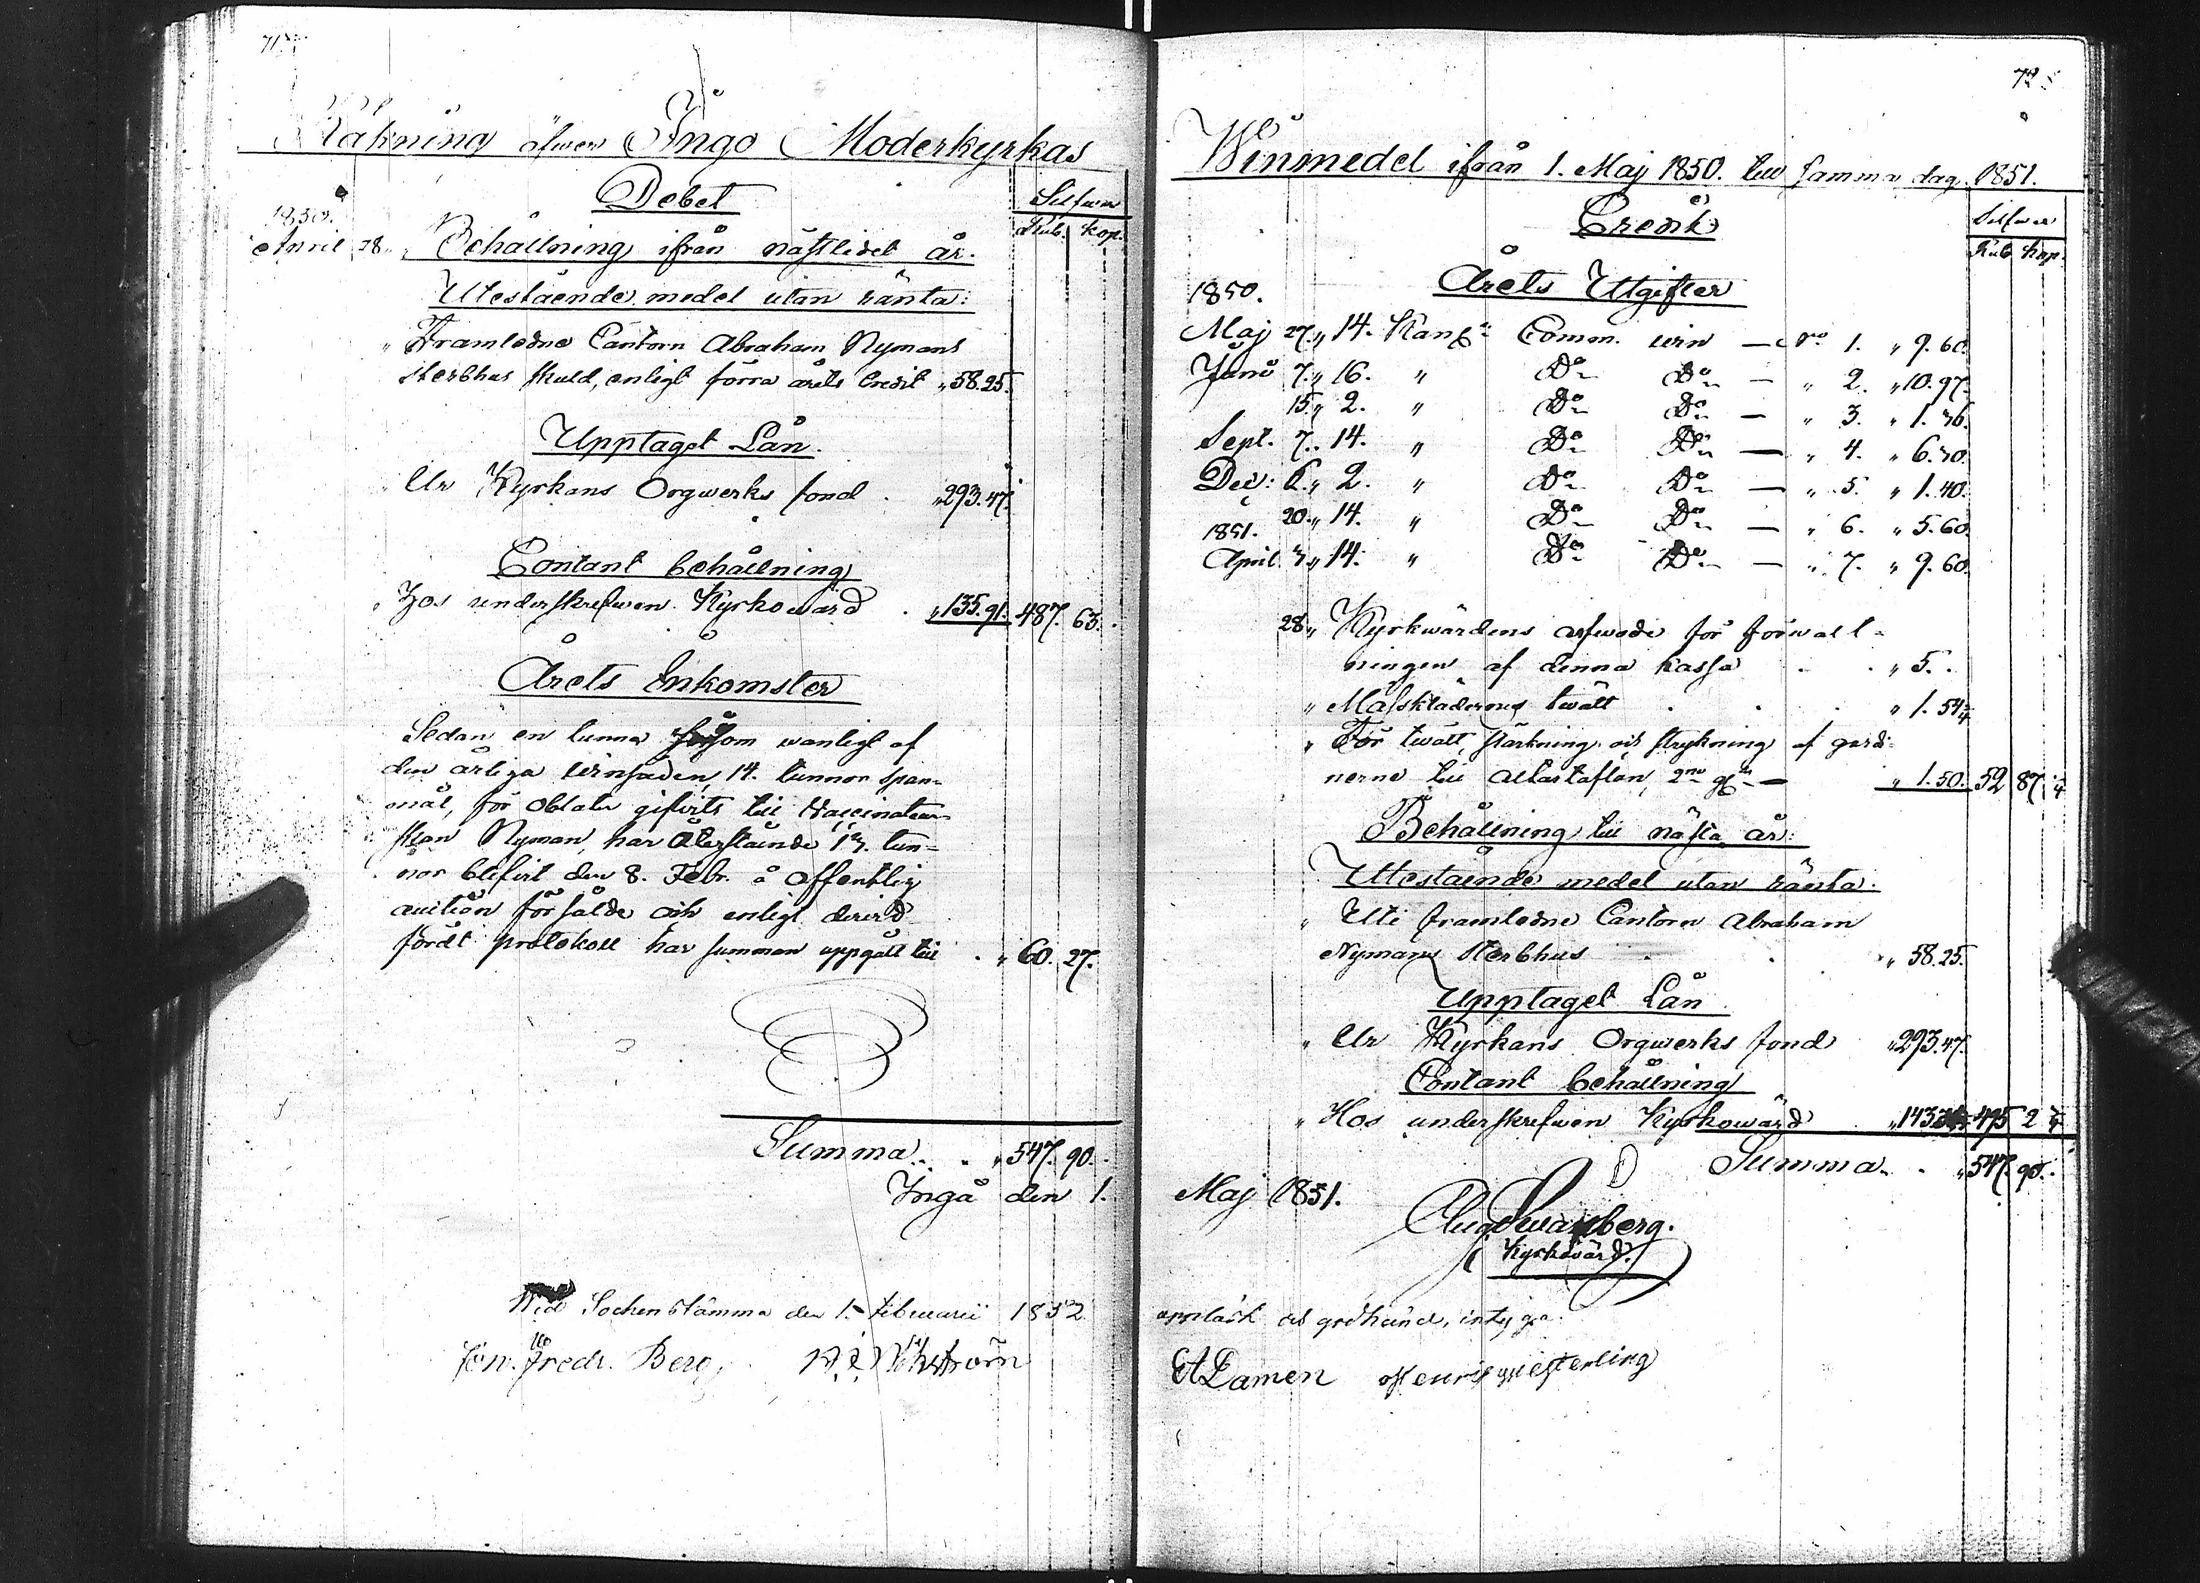 Räkning öfwer Ingo Moderkyrkas
Debet
Silfwer
Rub. Kop.
1850.
April 28. Behållning ifrån nästlidet år.
Utestående medel utan ränta:
" Framledne Cantorn Abraham Nymans
sterbhus skuld, enligt förra årets Credit " 58.25.
Upptaget Lån.
" Ur Kyrkans Orgwerks fond . " 293.47.
Contant behållning
" Hos underskrefwen Kyrkowärd . " 135.91. 487. 63.
Årets Inkomster
Sedan en tunna såsom wanligt af
den årliga winsäden, 14. tunnor span-
mål, för oblater gifwits till Vaccinatris-
skan Nyman, har återstående 13. tun-
nor blifwit den 8. Febr. å offentlig
auction försålde och enligt derwid
fördt protokoll har summan uppgått till . " 60. 27.
Summa . . " 547. 90.
Ingå den 1.
Wid Sockenstämma den 1. Februarii 1852
Fredr. Berg,
72
Winmedel ifrån 1. Maj 1850. till samma dag 1851.
Credit
Silfwer
Rub Kop.
Årets Utgifter
1850.
Maj 27. " 14. Kannor Comm. win — No 1. " 9.60.
Junii 7. " 16. " Do Do — " 2. " 10.97.
15. " 2. " Do Do — " 3. " 1.36.
Sept. 7. 14. " Do Do — " 4. " 6.30.
Dec: 6. " 2. " Do Do — " 5. " 1.40.
20. " 14. " Do Do — " 6. " 5.60.
1851.
April 3. " 14. " Do Do — " 7. " 9.60.
28. " Kyrkwärdens arfwode för förwalt-
ningen af denna kassa . . " 5. .
" Mässklädernas twätt . . . " 1. 54 2/4
" För twätt, stärkning och strykning af gardi-
nerne till Altartaflan, 2ne gr — " 1.50. 52 87 2/4
Behållning till nästa år:
Utestående medel utan ränta.
" Uti framledne Cantorn Abraham
Nymans Sterbhus . . " 58.25.
Upptaget Lån
" Ur Kyrkans Orgwerks fond " 293.47.
Contant behållning
" Hos underskrefwen Kyrkowärd " 143. 495 2 2/4
Summa . . " 547. 90.
Maj 1851.
Aug Swanberg.
Kyrkowärd.
uppläst och godkänd, intyga
Henric Westerling